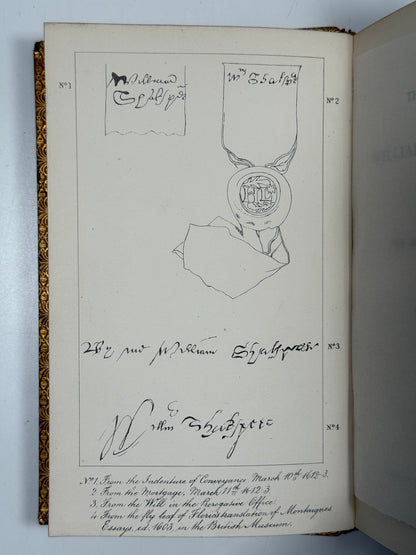 Nº1
William
Shakspẽr
Wᵐ Shakspẽ
Nº 2
HL
By me William Shakspeare
Nº3
Willm Shakspere
Nº4
Nº1. From the Indenture of Conveyance March 10th 1612-3.
2 From the Mortgage, March 11th 1612-3
3. From the Will in the Prerogative Office.
4 From the fly leaf of Florio's translation of Montaigne's
Essays, ed. 1603, in the British Museum.
TH
WILLIA